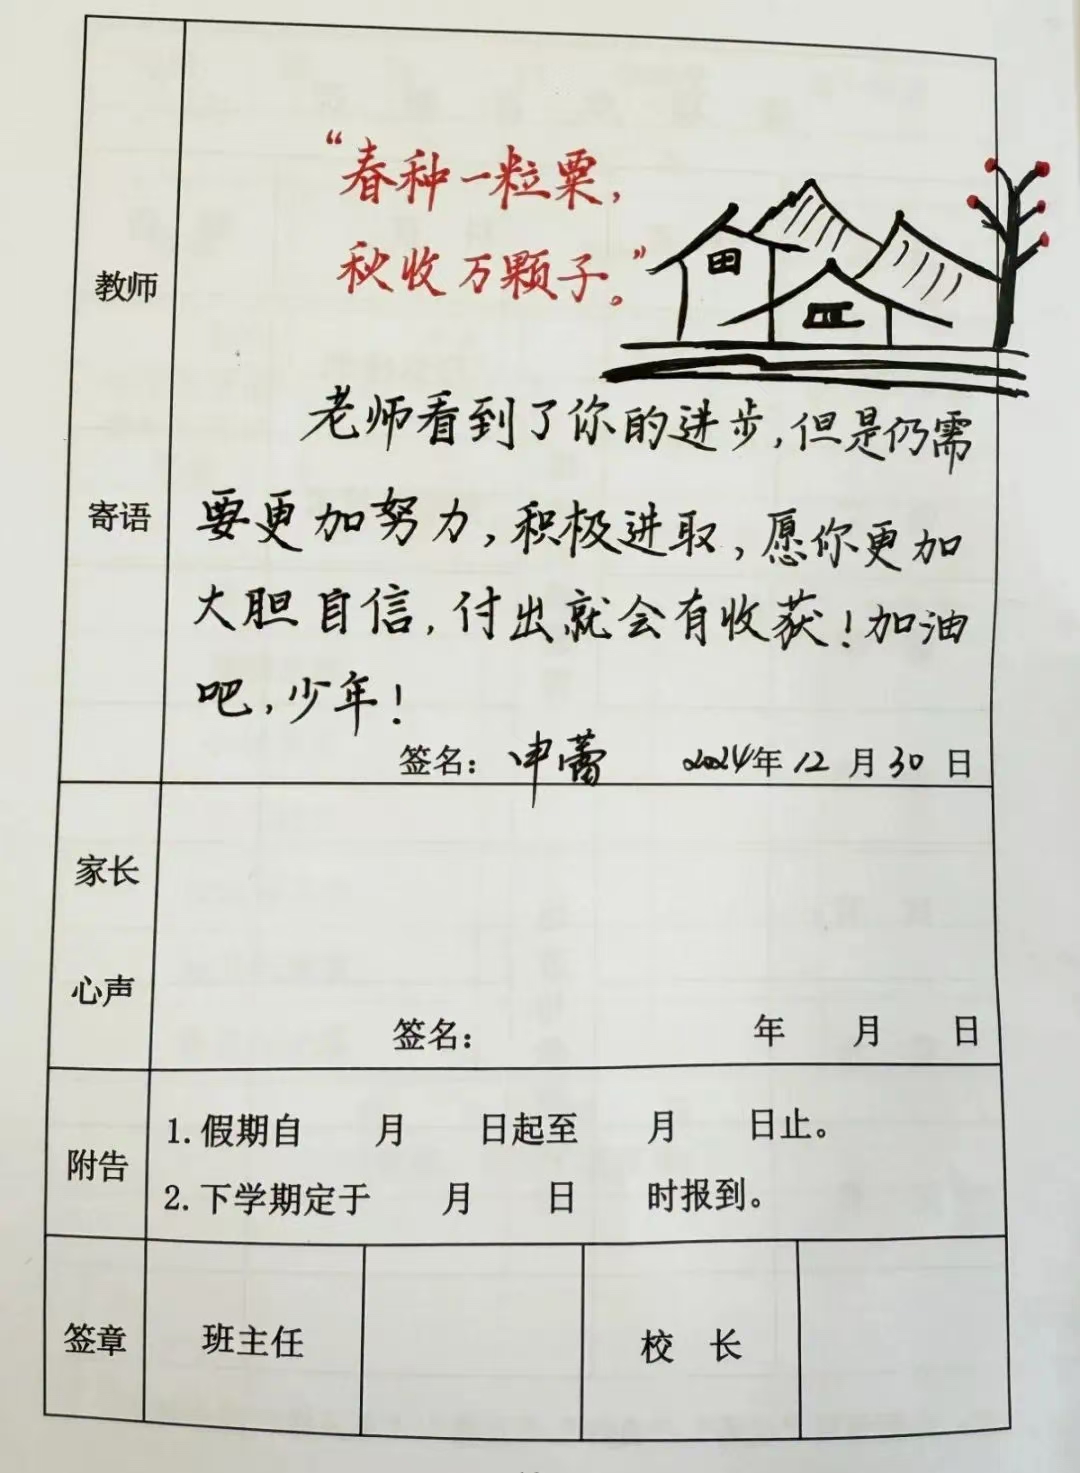 “春种一粒粟，
秋收万颗子。”
教师
寄语
老师看到了你的进步，但是仍需
要更加努力，积极进取，愿你更加
大胆自信，付出就会有收获！加油
吧，少年！
签名：申蕾 2024年12月30日
家长
心声
签名： 年 月 日
附告
1.假期自 月 日起至 月 日止。
2.下学期定于 月 日 时报到。
签章 班主任 校 长